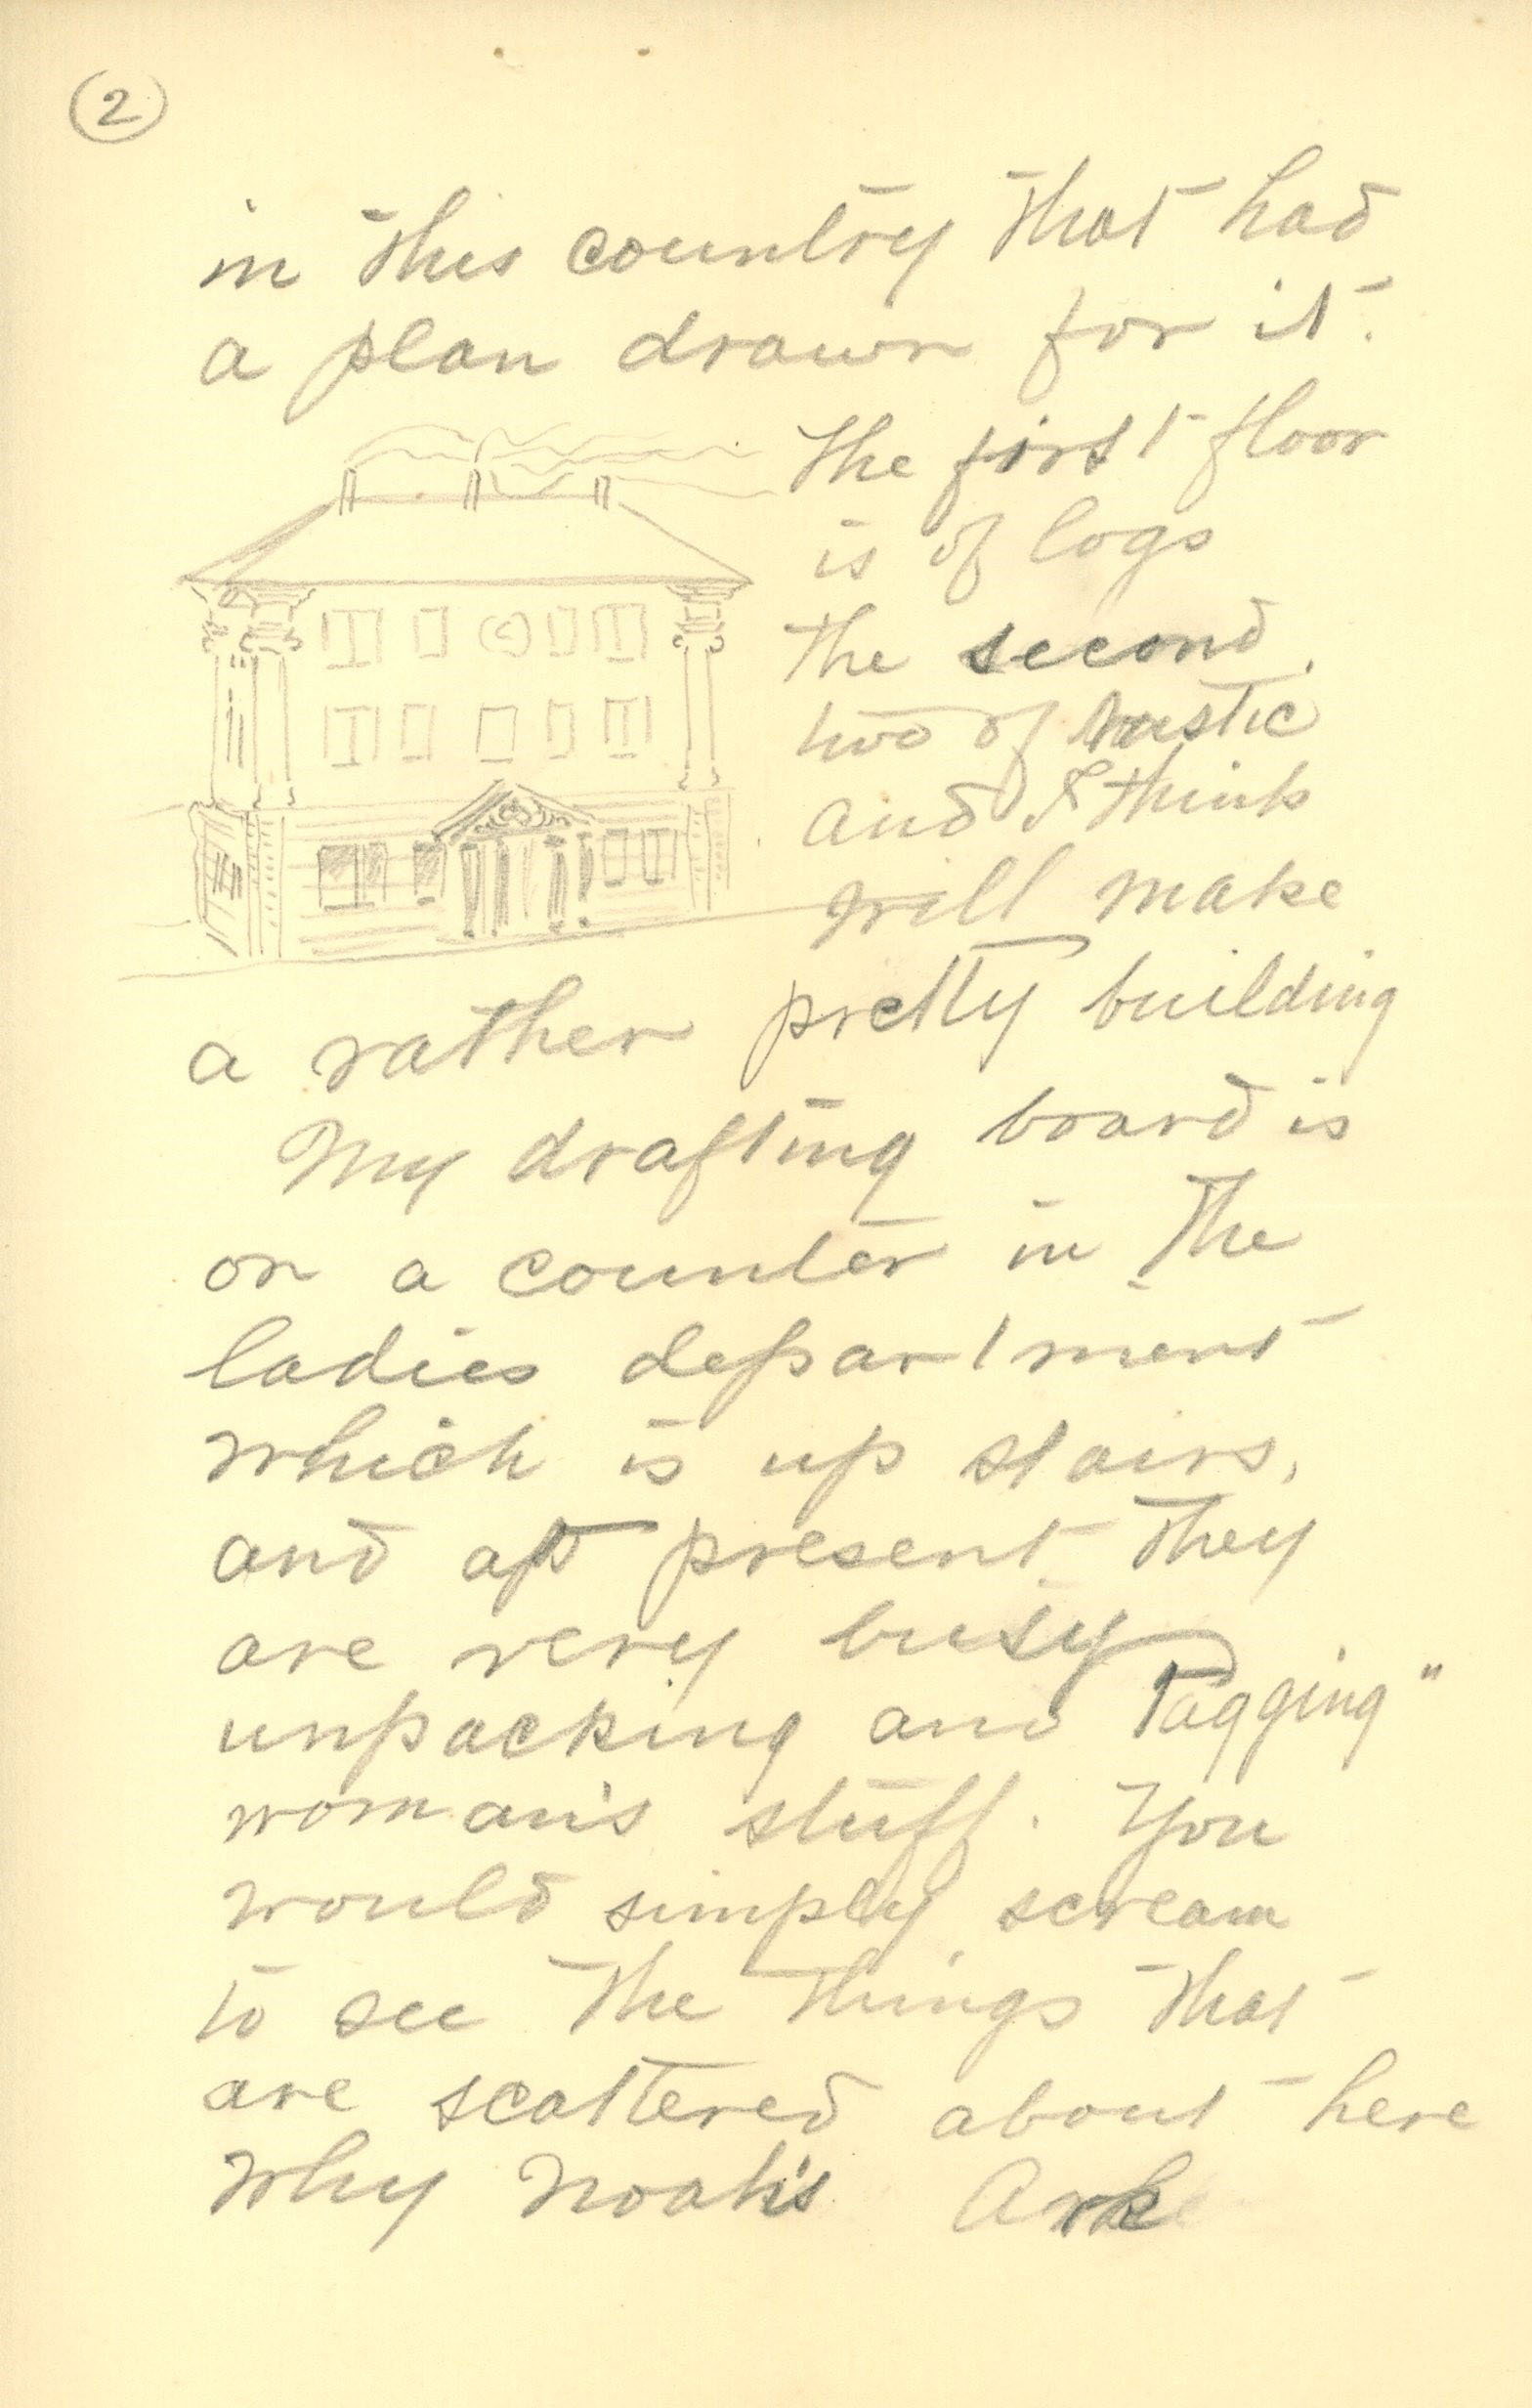 2
in this country that had
a plan drawn for it.
The first floor
is of logs
the second
two of rustic
and I think
will make
a rather pretty building
My drafting board is
on a counter in the
ladies department
which is up stairs,
and at present they
are very busy
unpacking and Tagging"
woman's stuff. You
would simply scream
to see the things that
are scattered about here
why Noah's Ark